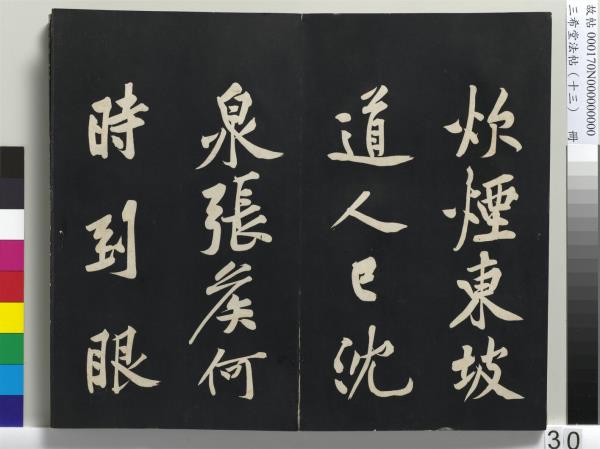 炊煙東坡
道人已沈
泉張矦何
時到眼
故帖 000170N000000000
三希堂法帖（十三） 冊
30